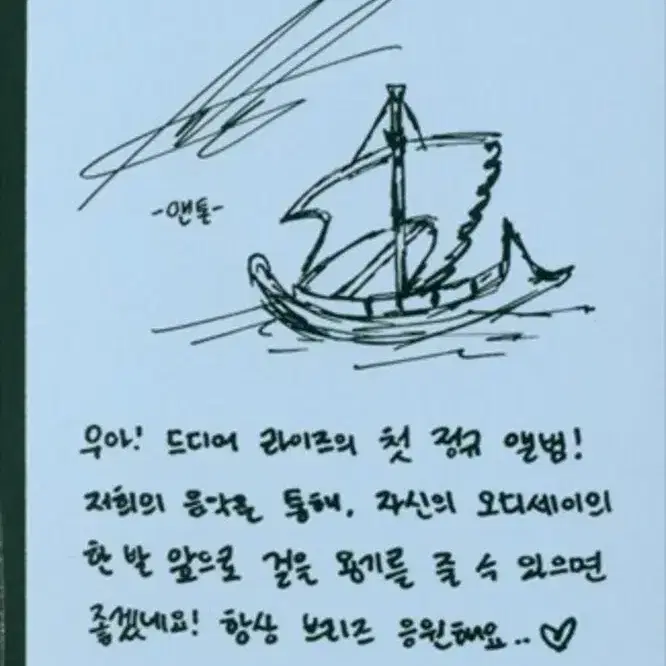 -앤톤-
우아! 드디어 라이즈의 첫 정규 앨범!
저희의 음악을 통해, 자신의 오디세이의
한 발 앞으로 걸을 용기를 줄 수 있으면
좋겠네요! 항상 브리즈 응원해요..♡